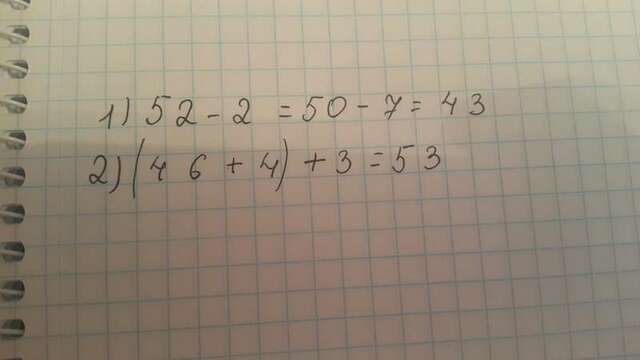 1) 52 - 2 = 50 - 7 = 43
2) (46 + 4) + 3 = 53